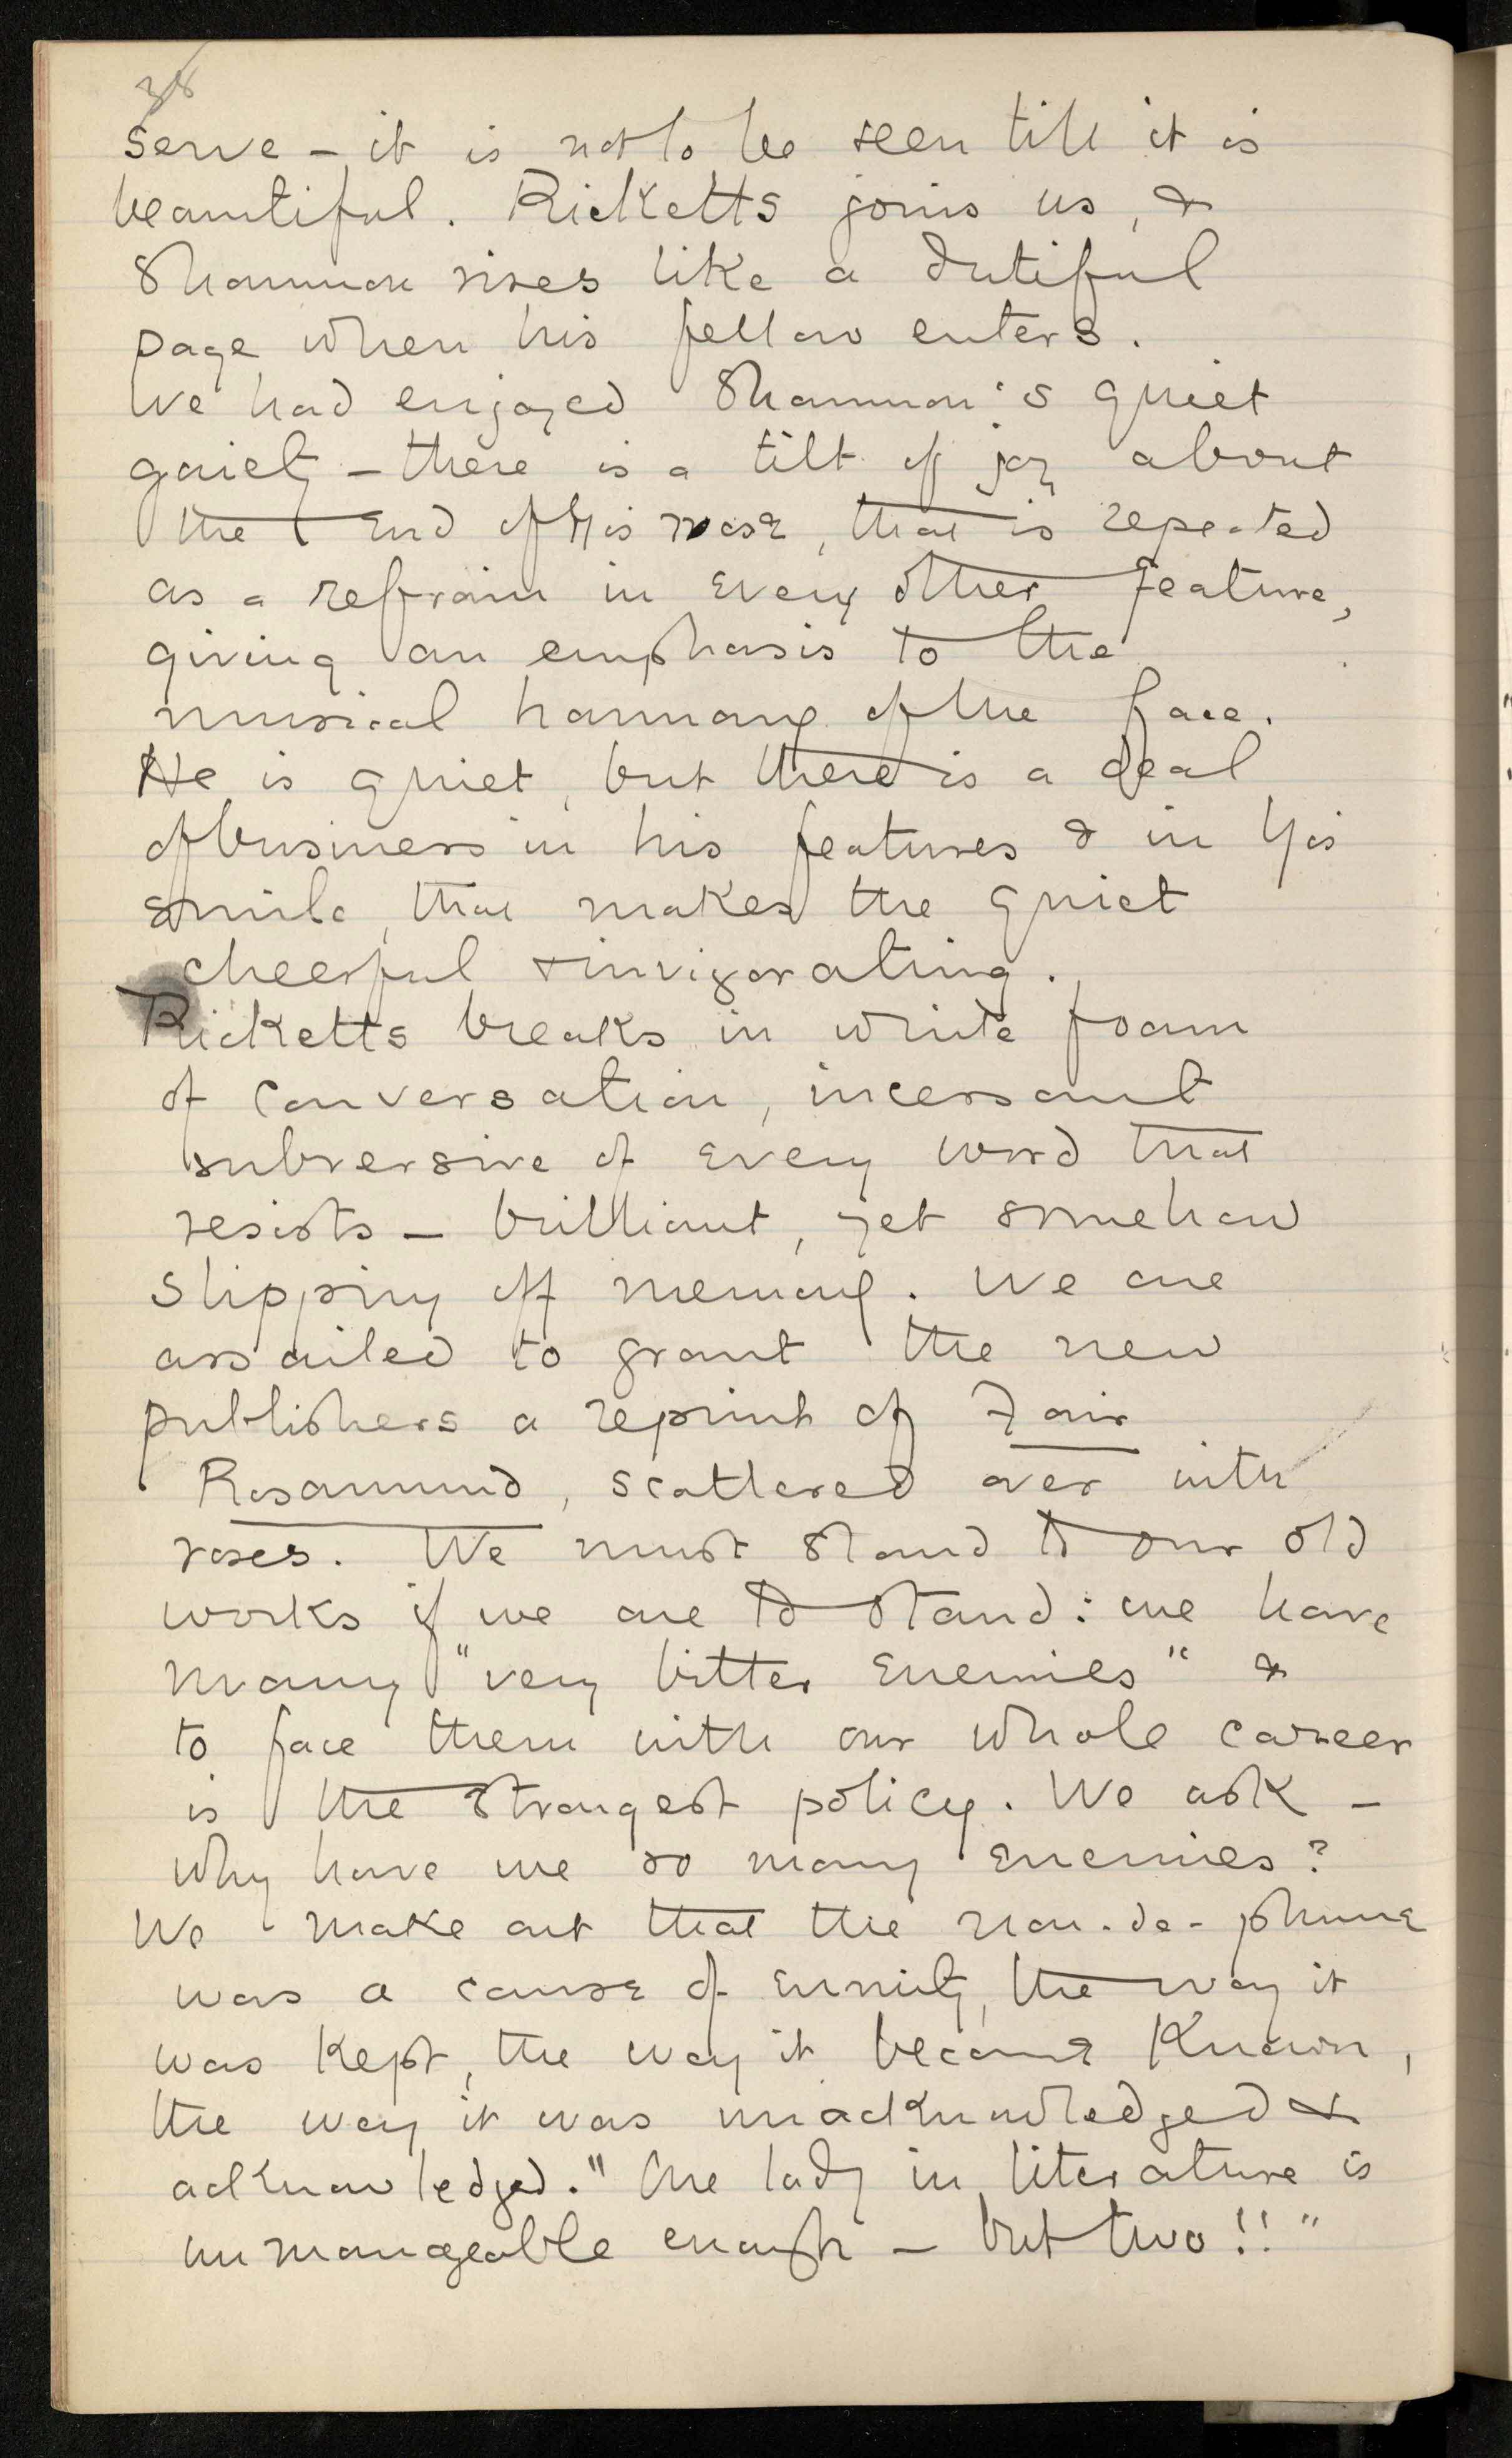 38
serve – it is not to be seen till it is
beautiful. Ricketts joins us, &
Shannon rises like a dutiful
page when his fellow enters.
We had enjoyed Shannon's quiet
gaiety – there is a tilt of joy about
the end of his nose, that is repeated
as a refrain in every other feature,
giving an emphasis to the
musical harmony of the face.
He is quiet, but there is a deal
of business in his features & in his
smile, that makes the quiet
cheerful & invigorating.
Ricketts breaks in white foam
of conversation, incessant
subversive of every word that
resists – brilliant, yet somehow
slipping off memory. We are
assailed to grant the new
publishers a reprint of Fair
Rosamund, scattered over with
roses. We must stand to our old
works if we are to stand: we have
many "very bitter enemies" &
to face them with our whole career
is the strongest policy. We ask –
why have we so many enemies?
We make out that the nom-de-plume
was a cause of enmity, the way it
was kept, the way it became known,
the way it was unacknowledged &
acknowledged. "One lady in literature is
unmanageable enough – but two!!"